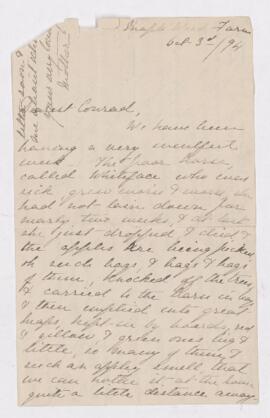 Maple Wood Farm
Oct 3rd /94
letter soon &
your very loving
Mother
Dearest Conrad,
We have been
having a very
week. The poor horse
called Whiteface who was
sick grew worse & worse, she
had not lain down for
nearly two weeks, & at last
she just dropped & died &
the apples are being picked
oh such bags, & bags & bags
of them, knocked off the trees
& carried to the barn in
& then emptied into great
heaps kept in by boards, red
& yellow & green ones big &
little, so many of them &
such an apple smell that
we can notice it at the house
quite a little distance away